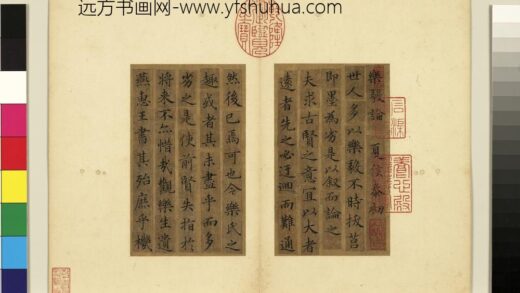 远方书画网-www.yfshuhua.com
樂毅論 夏侯泰初
世人多以樂毅不時拔莒
即墨為劣是以叙而論之
夫求古賢之意宜以大者
遠者先之必迂迴而難通
然後已焉可也今樂氏之
趣或者其未盡乎而多
劣之是使前賢失指於
將來不亦惜哉觀樂生遺
燕惠王書其殆庶乎機
養心殿